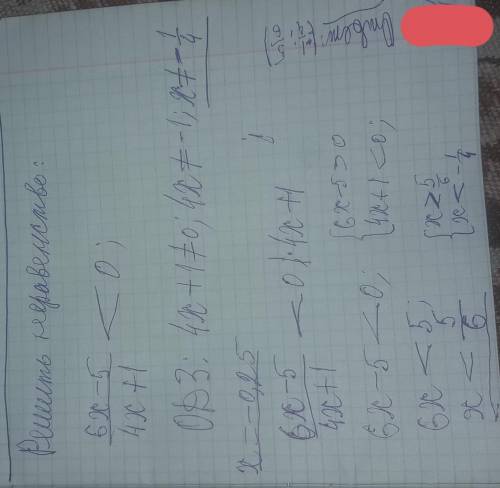 Решить неравенство:
6x-5 / 4x+1 < 0;
ОДЗ: 4x+1≠0; 4x≠-1; x≠-1/4
x=-0,25
6x-5 / 4x+1 < 0 |·4x+1
6x-5<0; { 6x-5>0
{ 4x+1<0;
6x<5; { x≥5/6
x<5/6 { x<-1/4
Ответ: